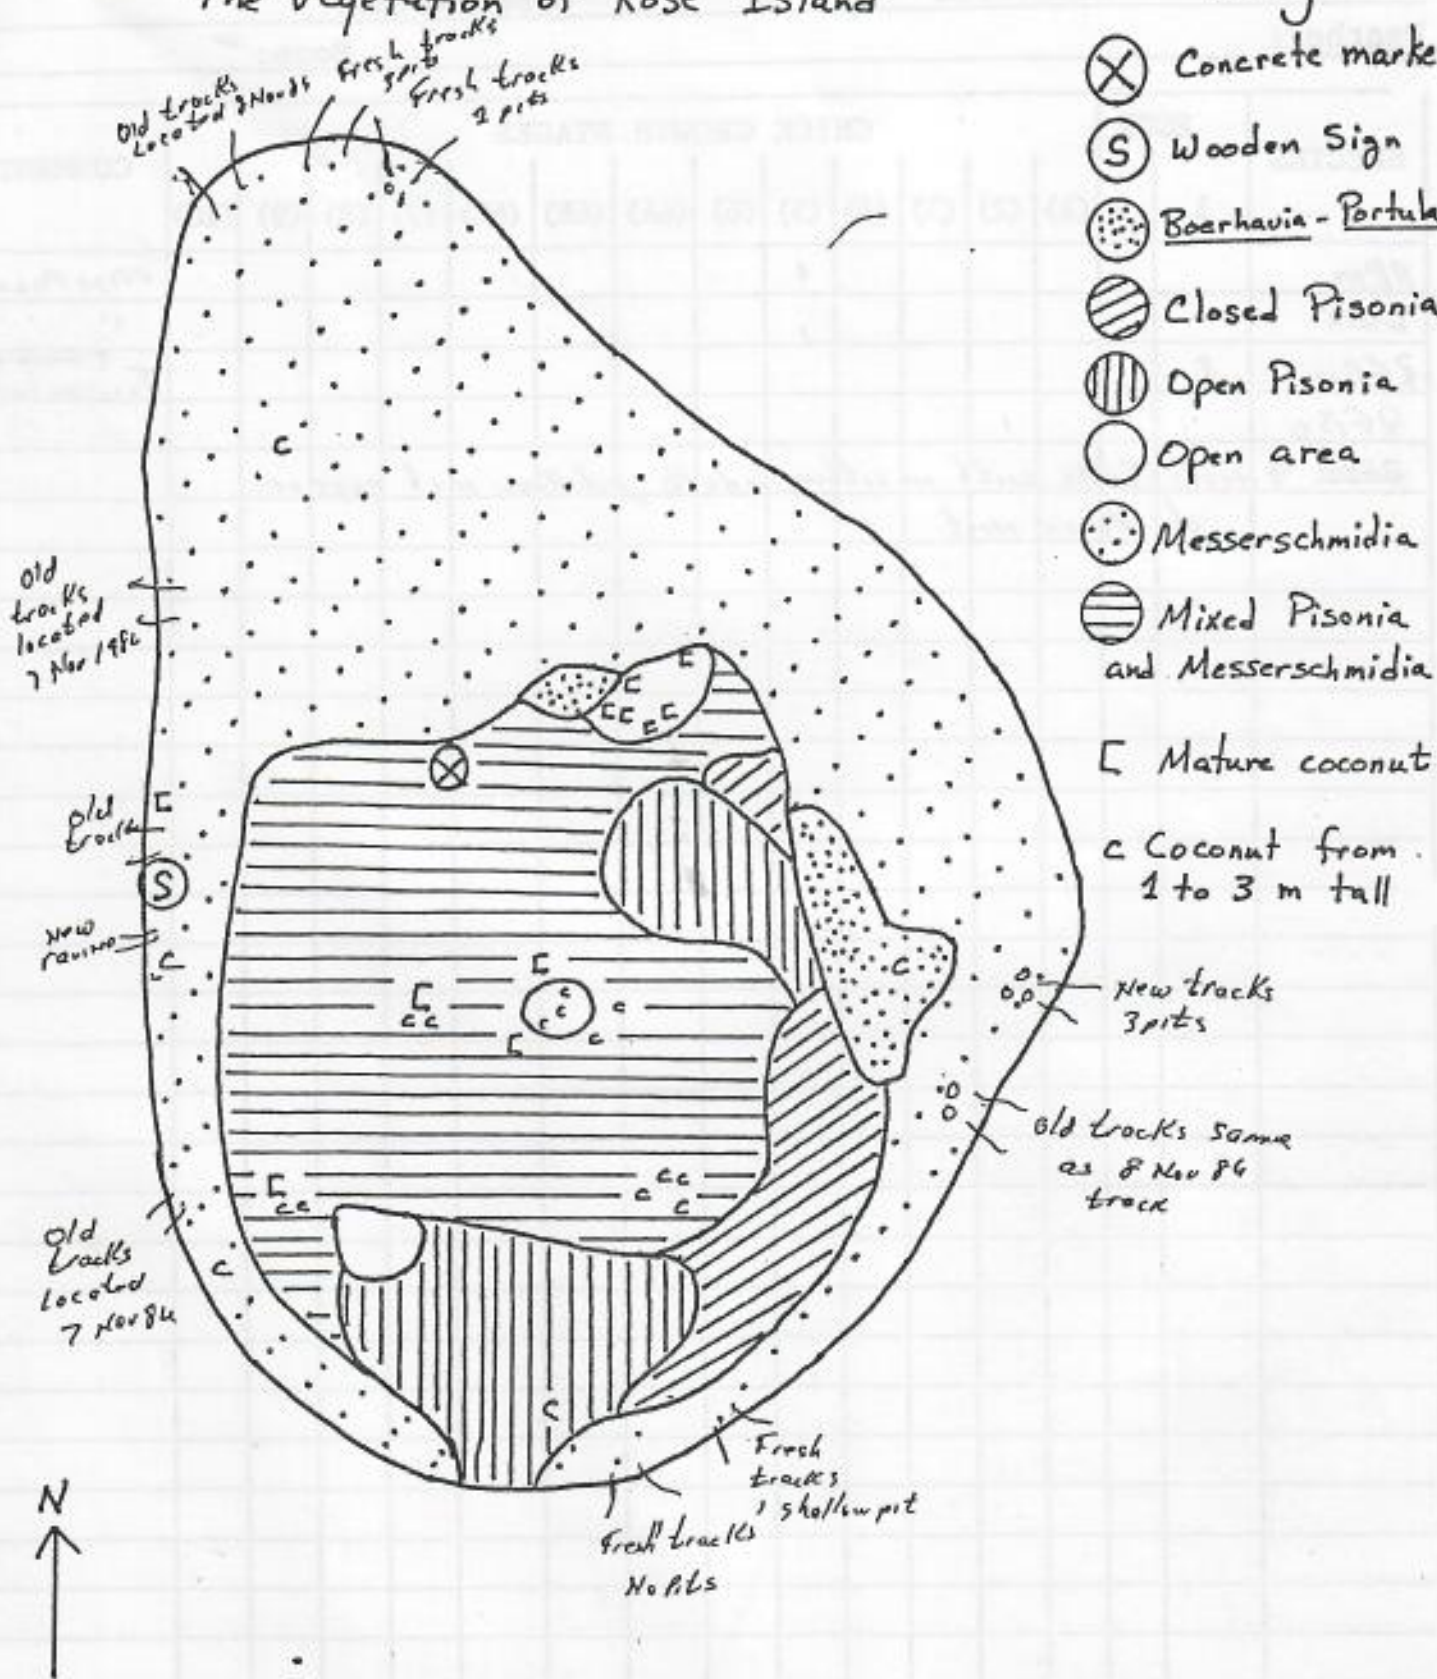 The Vegetation of Rose Island
Old tracks
Located 8 Nov 86
Fresh tracks
pits
Fresh tracks
2 pits
Concrete marke
S Wooden Sign
Boerhavia - Portula
Closed Pisonia
Open Pisonia
Open area
Messerschmidia
Mixed Pisonia
and Messerschmidia
C Mature coconut
c Coconut from
1 to 3 m tall
old
tracks
located
7 Nov 1986
old
tracks
S
New
New tracks
3 pits
old tracks same
as 8 Nov 86
track
Old
tracks
Located
7 Nov 86
Fresh
tracks
1 shallow pit
Fresh tracks
No Pits
N